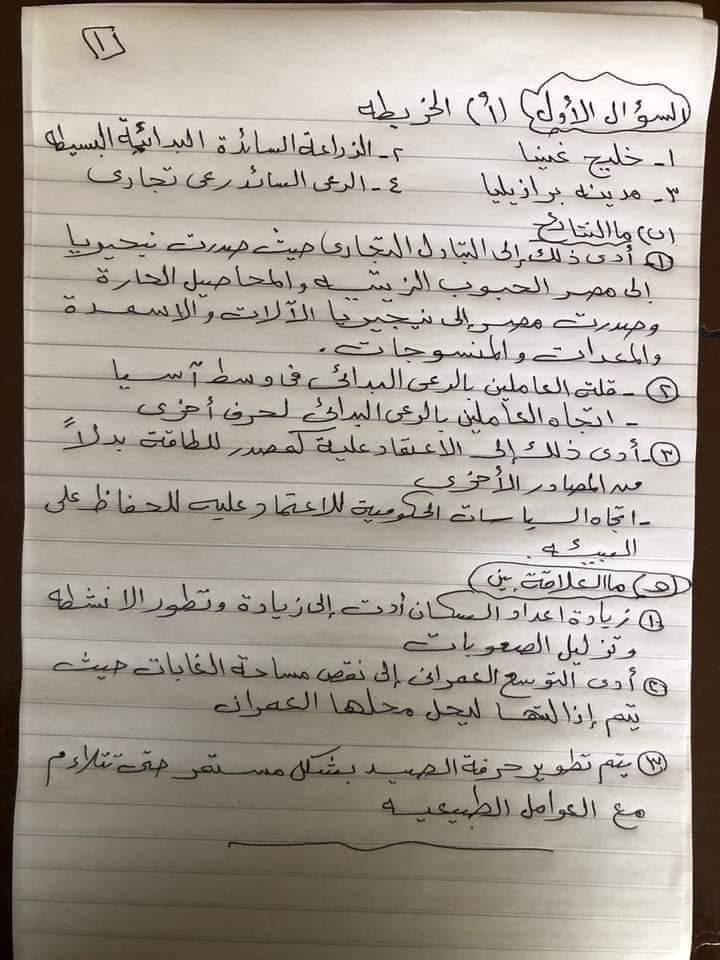 ١
السؤال الأول (أ) الخريطه
١- خليج غينيا ٢- الزراعة السائدة البدائية البسيطه
٣- مدينه برازيليا ٤- الرعى السائد رعى تجارى
(ب) ما النتائج
١ أدى ذلك إلى التبادل التجارى حيث صدرت نيجيريا
إلى مصر الحبوب الزيتيه والمحاصيل الحارة
وصدرت مصر إلى نيجيريا الآلات والاسمدة
والمعدات والمنسوجات.
٢ - قلة العاملين بالرعى البدائى فى وسط آسيا
- اتجاه العاملين بالرعى البدائى لحرف أخرى
٣ - أدى ذلك إلى الاعتقاد علية كمصدر للطاقة بدلاً
من المصادر الأخرى
- اتجاه السياسات الحكومية للاعتماد عليه للحفاظ على
البيئه.
(هـ) ما العلاقة بين
١ زيادة اعداد السكان أدت إلى زيادة وتطور الانشطه
وتزليل الصعوبات
٢ أدى التوسع العمرانى إلى نقص مساحة الغابات حيث
يتم إذالتها ليحل محلها العمران
٣ يتم تطوير حرفة الصيد بشكل مستمر حتى تتلاءم
مع العوامل الطبيعيه